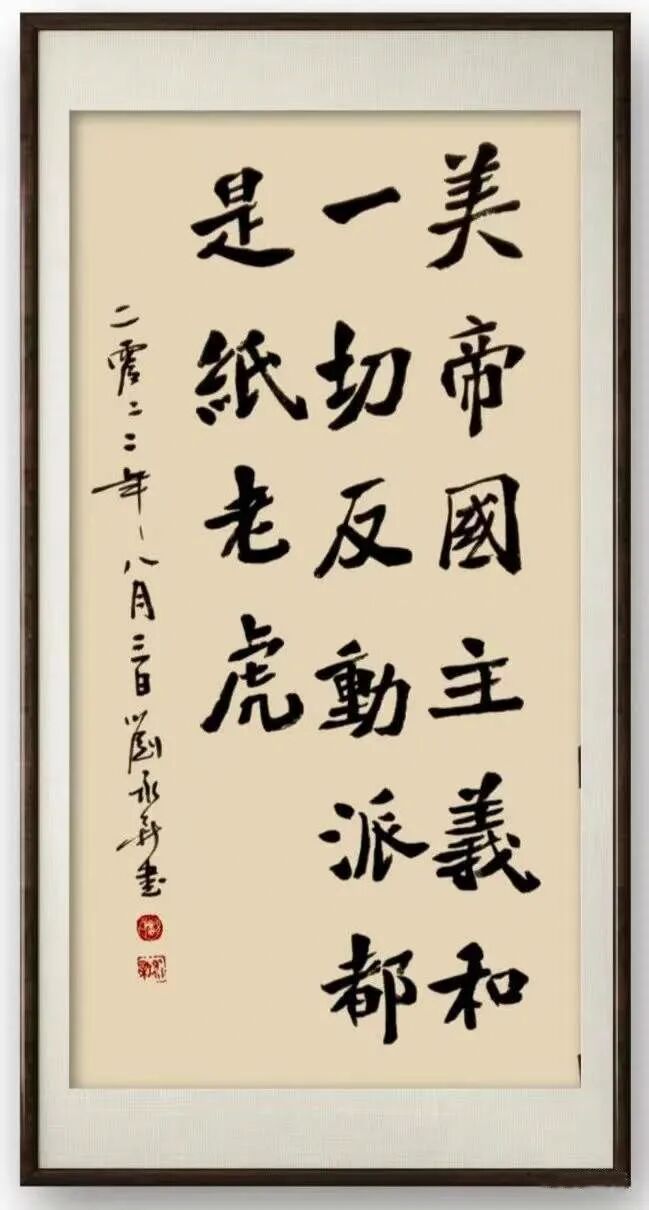 美帝國主義和
一切反動派都
是紙老虎
二零二二年八月三日劉永新書